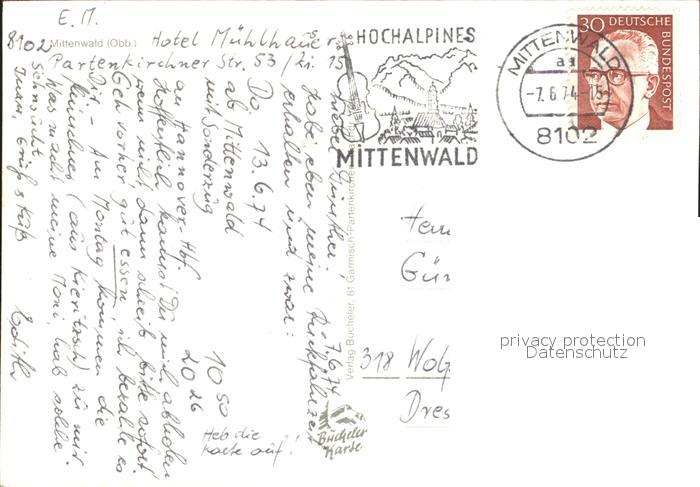 E. M.
8102 Mittenwald (Obb.) Hotel Mühlhauer
Partenkirchner Str. 53 / Zi 15
7.6.74
Habe eben meine Rückfahrzeit
erhalten und zwar:
Do. 13.6.74
ab Mittenwald 10 50
mit Sonderzug
an Hannover Hbf 20 26
Hoffentlich kannst Du mich abholen
wenn nicht dann schreib bitte sofort.
Geh vorher gut essen, ich bezahle es
Dir. - Am Montag kommen die
Münchner (aus ) zu mir.
Was macht meine Moni, hab solche
Sehnsucht
Gruß & Kuß
Edith
Heb die
Karte auf!
HOCHALPINES
MITTENWALD
MITTENWALD
-7.6.74-15
8102
30 DEUTSCHE
BUNDESPOST
Verlag Bücheler, 81 Garmisch-Partenkirchen
Bücheler
Karte
Herrn
Gün
318 Wolf
Dres
privacy protection
Datenschutz